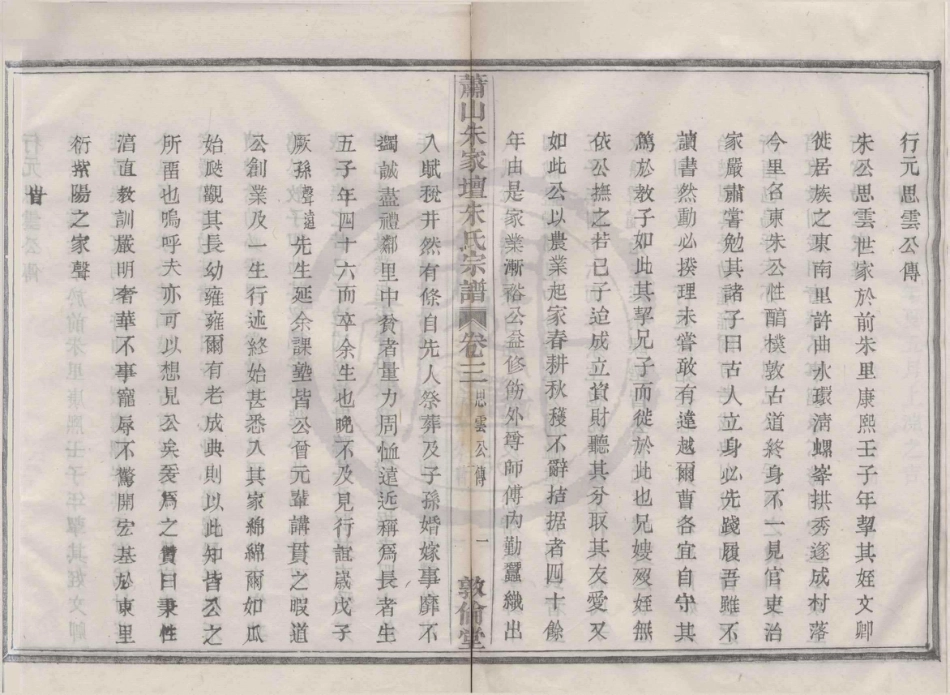 行元思雲公傳
朱公思雲世家於前朱里康熙壬子年挈其姪文卿
徙居族之東南里許曲水環淸螺峯拱秀遂成村落
今里名東朱公性醕樸敦古道終身不一見官吏治
家嚴肅嘗勉其諸子曰古人立身必先踐履吾雖不
讀書然動必揆理未嘗敢有違越爾曹各宜自守其
篤於教子如此其挈兄子而徙於此也兄嫂歿姪無
依公撫之若已子迨成立貲財聽其分取其友愛又
如此公以農業起家春耕秋穫不辭拮据者四十餘
年由是家業漸裕公益修飭外尊師傅內勤蠶織出
蕭山朱家壇朱氏宗譜 卷三 思雲公傳 一 敦倫堂
入賦稅井然有條自先人祭葬及子孫婚嫁事靡不
獨誠盡禮鄰里中貧者量力周恤遠近稱爲長者生
五子年四十六而卒余生也晚不及見行誼歲戊子
厥孫聲遠先生延余課塾皆公曾元輩講貫之暇道
公創業及一生行述終始甚悉入其家綿綿爾如瓜
始瓞觀其長幼雍雍爾有老成典則以此知皆公之
所畱也嗚呼夫亦可以想見公矣爰爲之贊曰秉性
湻直教訓嚴明奢華不事寵辱不驚開宏基於東里
衍紫陽之家聲